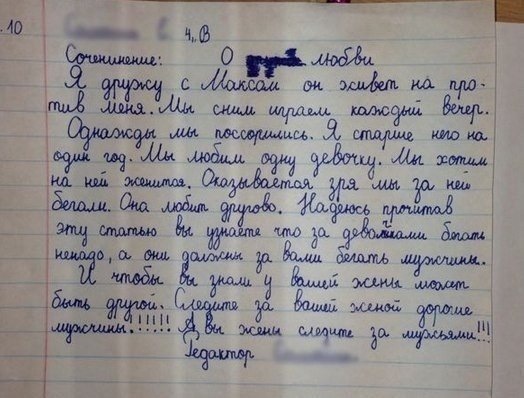 .10
4 „В
Соченинение: О любви
Я дружу с Максом он живет на про-
тив меня. Мы сним играем каждый вечер.
Однажды мы поссорились. Я старше него на
один год. Мы любим одну девочку. Мы хотим
на ней женится. Оказывается зря мы за ней
бегали. Она любит другово. Надеюсь прочитав
эту статью вы узнаете что за девочками бегать
ненадо, а они должны за вами бегать мужчины.
И чтобы вы знали у вашей жены может
быть другой. Следите за вашей женой дорогие
мужчины.!!!!! А вы жены следите за мужьями!!!
Редактор